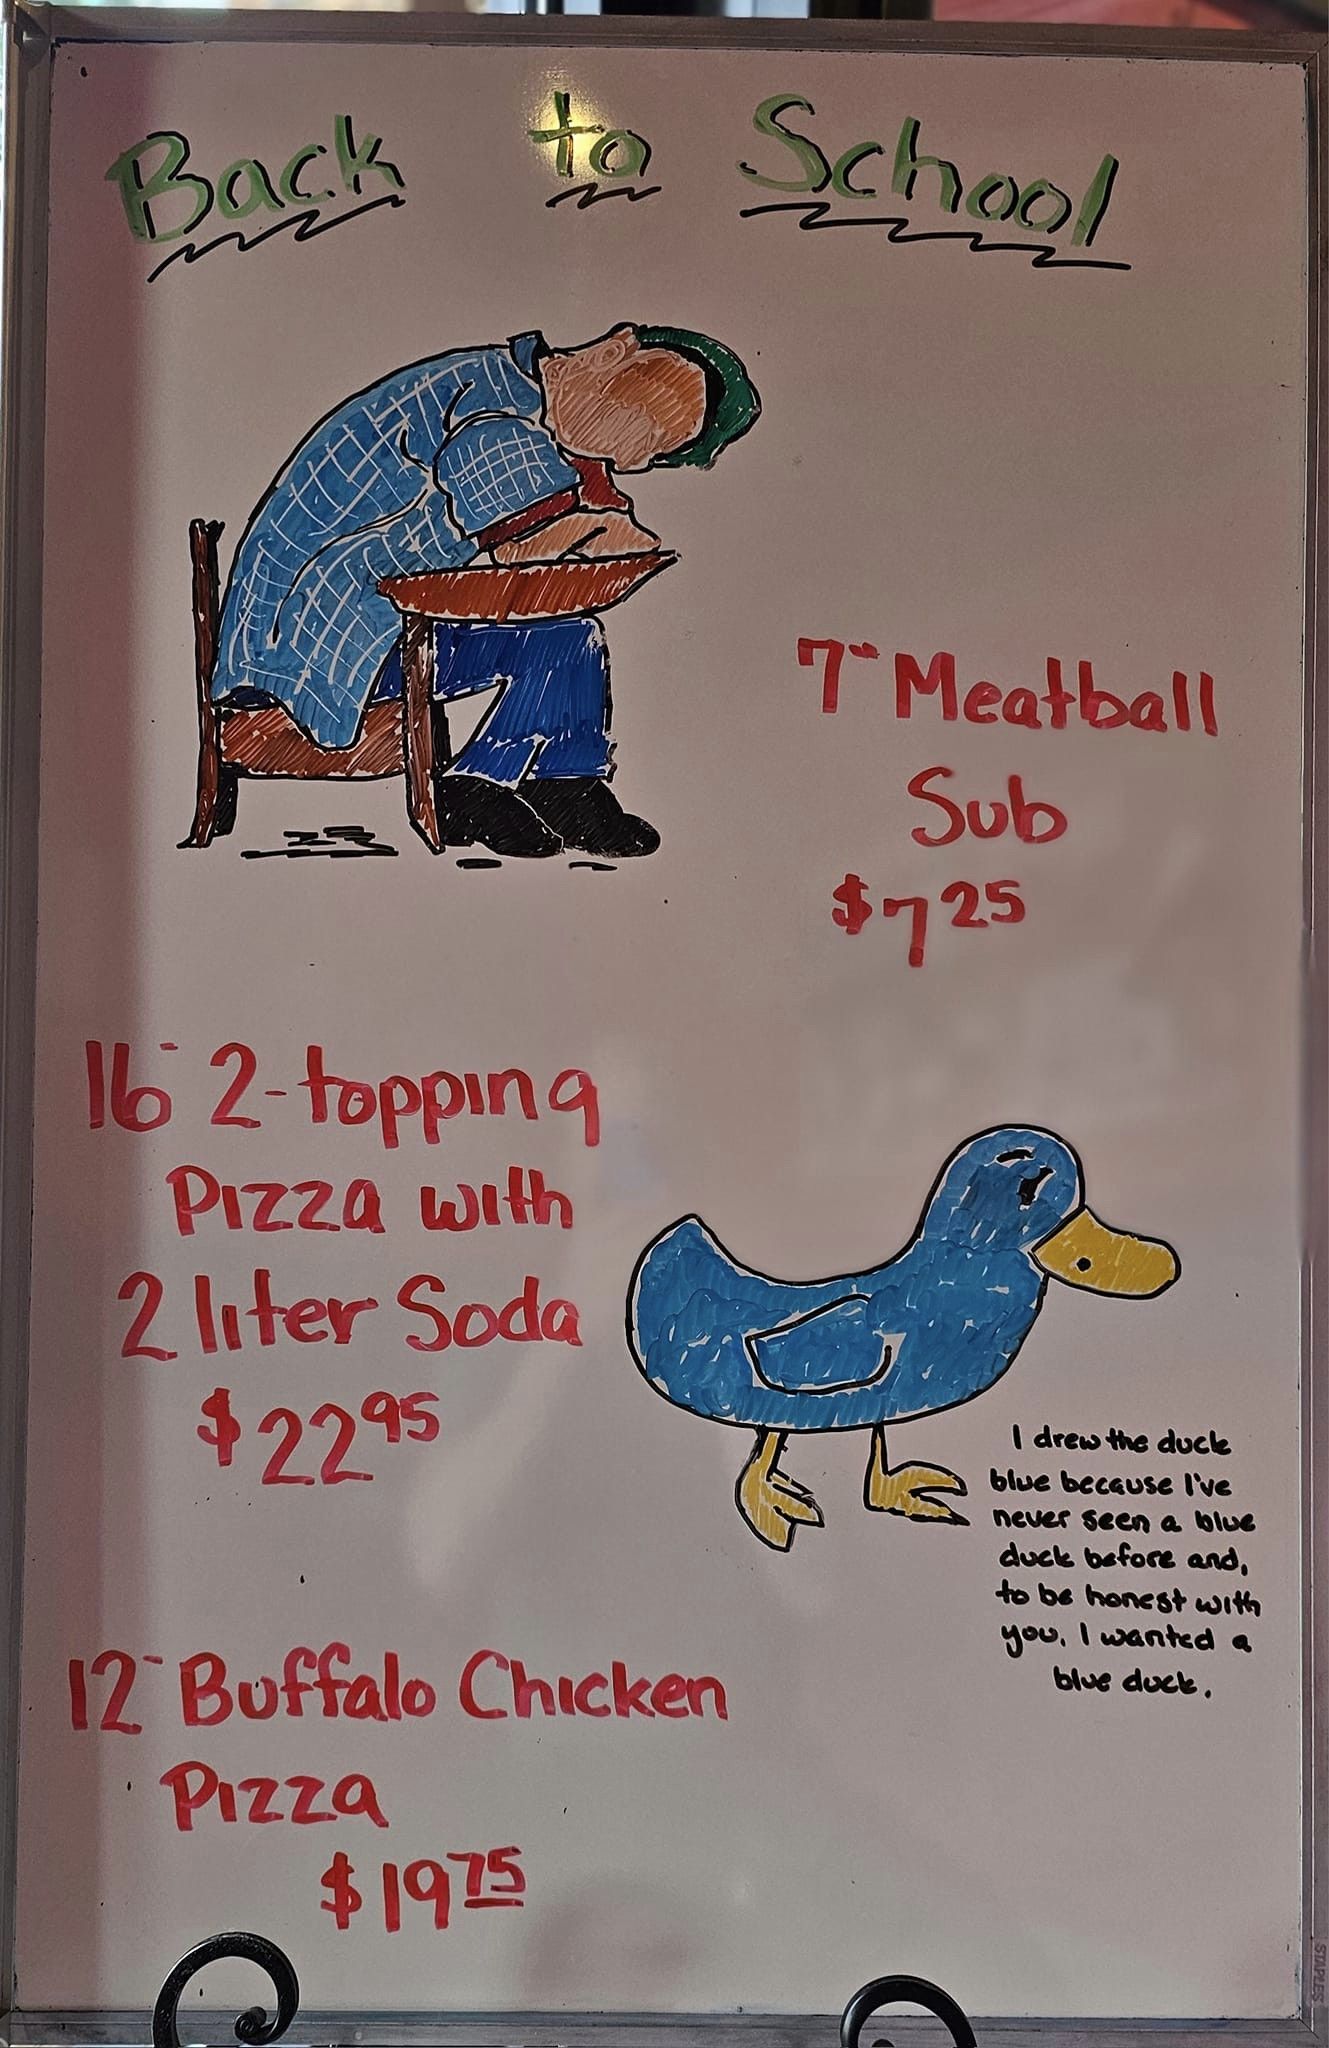 Back to School
7" Meatball
Sub
$7 25
16" 2-topping
Pizza with
2 liter Soda
$22 95
I drew the duck
blue because I've
never seen a blue
duck before and,
to be honest with
you, I wanted a
blue duck.
12" Buffalo Chicken
Pizza
$19 75
STAPLES